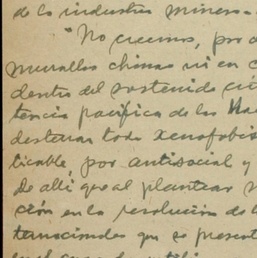 de la industria minera.
"No creemos, por
murallas chinas ni en
dentro del sostenido
tencia pacífica de las
desterrar todo xenofobis
ticable, por antisocial y
De allí que al plantear
ción en la resolución de
ternacionales que se present